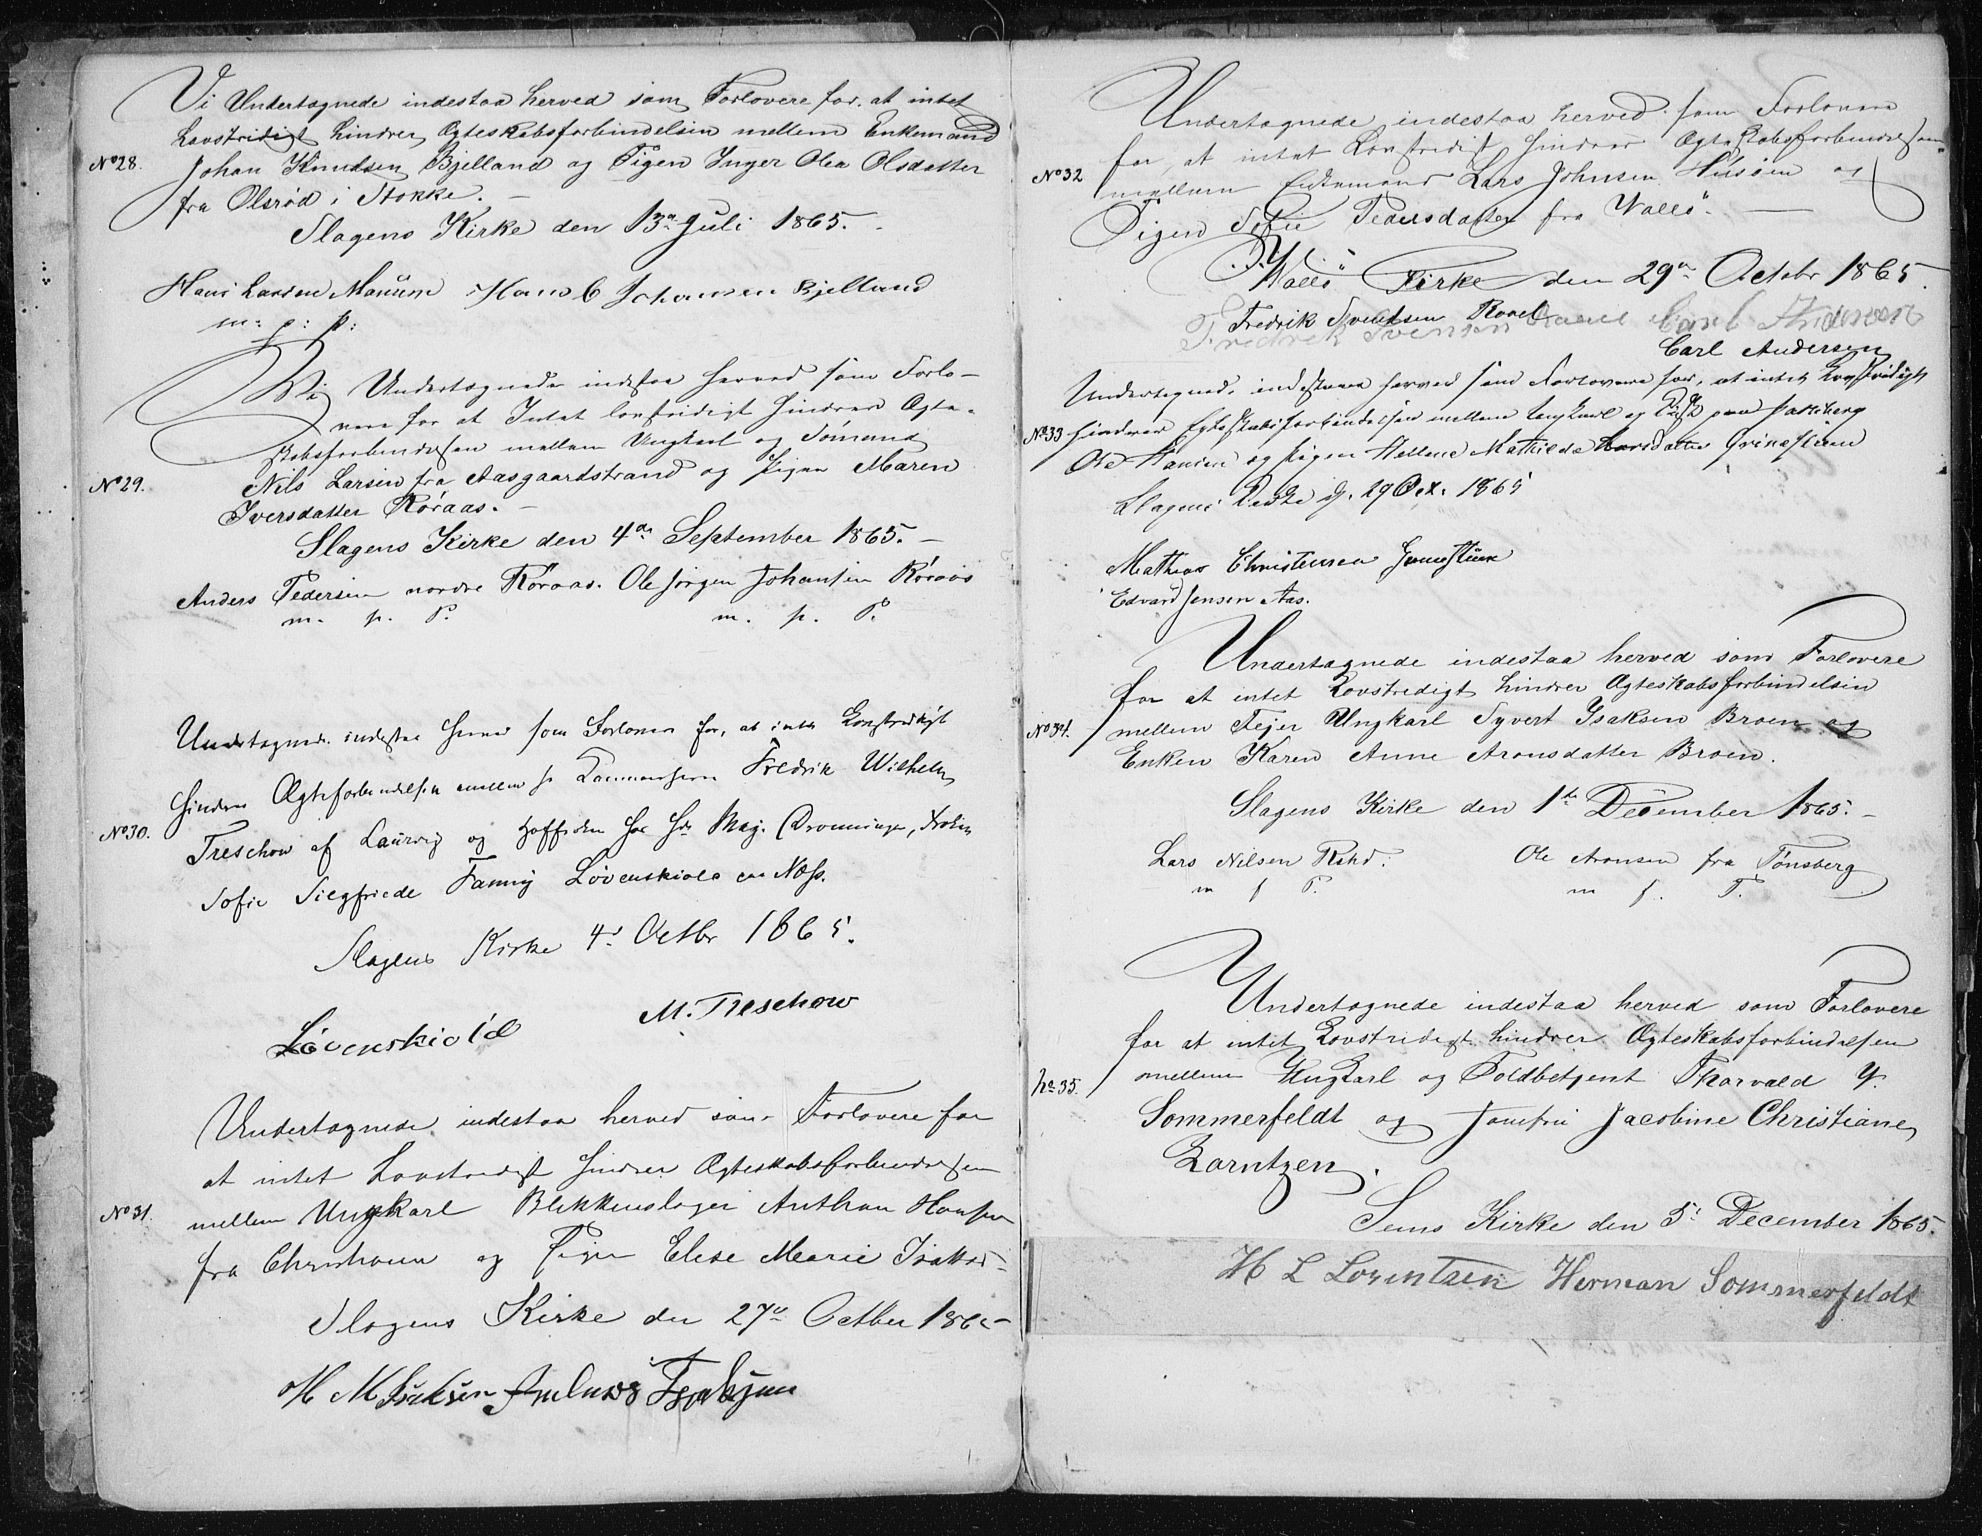 Vi Undertegnede indestaa herved som Forlovere for, at intet
Lovstridigt hindrer Ægteskabsforbindelsen mellem Enkemand
No 28. Johan Knudsen Bjelland og Pigen Inger Olea Olsdatter
fra Olsrød i Stokke. —
Slagens Kirke den 13de Juli 1865.
Hans Larsen Hans C Johansen Bjelland
m: p: p:
Vi Undertegnede indestaa herved som Forlo-
vere for at Intet lovstridigt hindrer Ægte-
skabsforbindelsen mellem Ungkarl og Sømand
No 29. Nils Larsen fra Aasgaardstrand og Pigen Maren
Iversdatter Røraas. —
Slagens Kirke den 4de September 1865. —
Anders Pedersen nordre Røraas. Ole Jørgen Johansen Røraas
m. p. P. m. p. P.
Undertegnede indestaa herved som Forlovere for, at intet Lovstridigt
hindrer Ægteforbindelsen mellem Fredrik Wilhelm
No 30. Treschow af Laurvig og Hoffrøken hos Hds Maj. Dronningen, Frøken
Sofie Siegfriede Fanny Løvenskiold Næss.
Slagens Kirke 4d Octbr 1865.
Løvenskiold M. Treschow
Undertegnede indestaa herved som Forlovere for
at intet Lovstridigt hindrer Ægteskabsforbindelsen
No 31. mellem Ungkarl Blikkenslager Anthon Hansen
fra Christiania og Pigen Elise Marie
Slagens Kirke den 27de Octber 1865
H M Isaksen
Undertegnede indestaa herved som Forlovere
for, at intet Lovstridigt hindrer Ægteskabsforbindelsen
No 32 mellem Enkemand Lars Johnsen Husøen og
Pigen Sofie Pedersdatter fra Valløe. —
Valløe Kirke den 29de Octobr 1865.
Fredrik Svendsen Carl Andersen
Fredrik Svensen Carl Andersen
Undertegnede indestaaer herved som Forlovere for, at intet Lovstridigt
No 33 hindrer Egteskabsforbindelsen mellem Ungkarl og
Ole Hansen og Pigen Hellene Mathilde Larsdatter Grinestuen
Slagens Kirke d. 29 Oct. 1865
Mathias Christensen
Edvard Jensen Aas.
Undertegnede indestaa herved som Forlovere
for at intet Lovstridigt hindrer Ægteskabsforbindelsen
No 34. mellem Fejer Ungkarl Syvert Isaksen Broen og
Enken Karen Anne Aronsdatter Broen.
Slagens Kirke den 1ste December 1865. —
Lars Nilsen Ole Aronsen fra Tønsberg
m f P. m f. P.
Undertegnede indestaa herved som Forlovere
for at intet Lovstridigt hindrer Ægteskabsforbindelsen
No 35. mellem Ungkarl og Toldbetjent Thorvald
Sommerfeldt og Jomfru Jacobine Christiane
Lorntzen.
Sems Kirke den 5te December 1865.
H L Lorentzen Herman Sommerfeldt